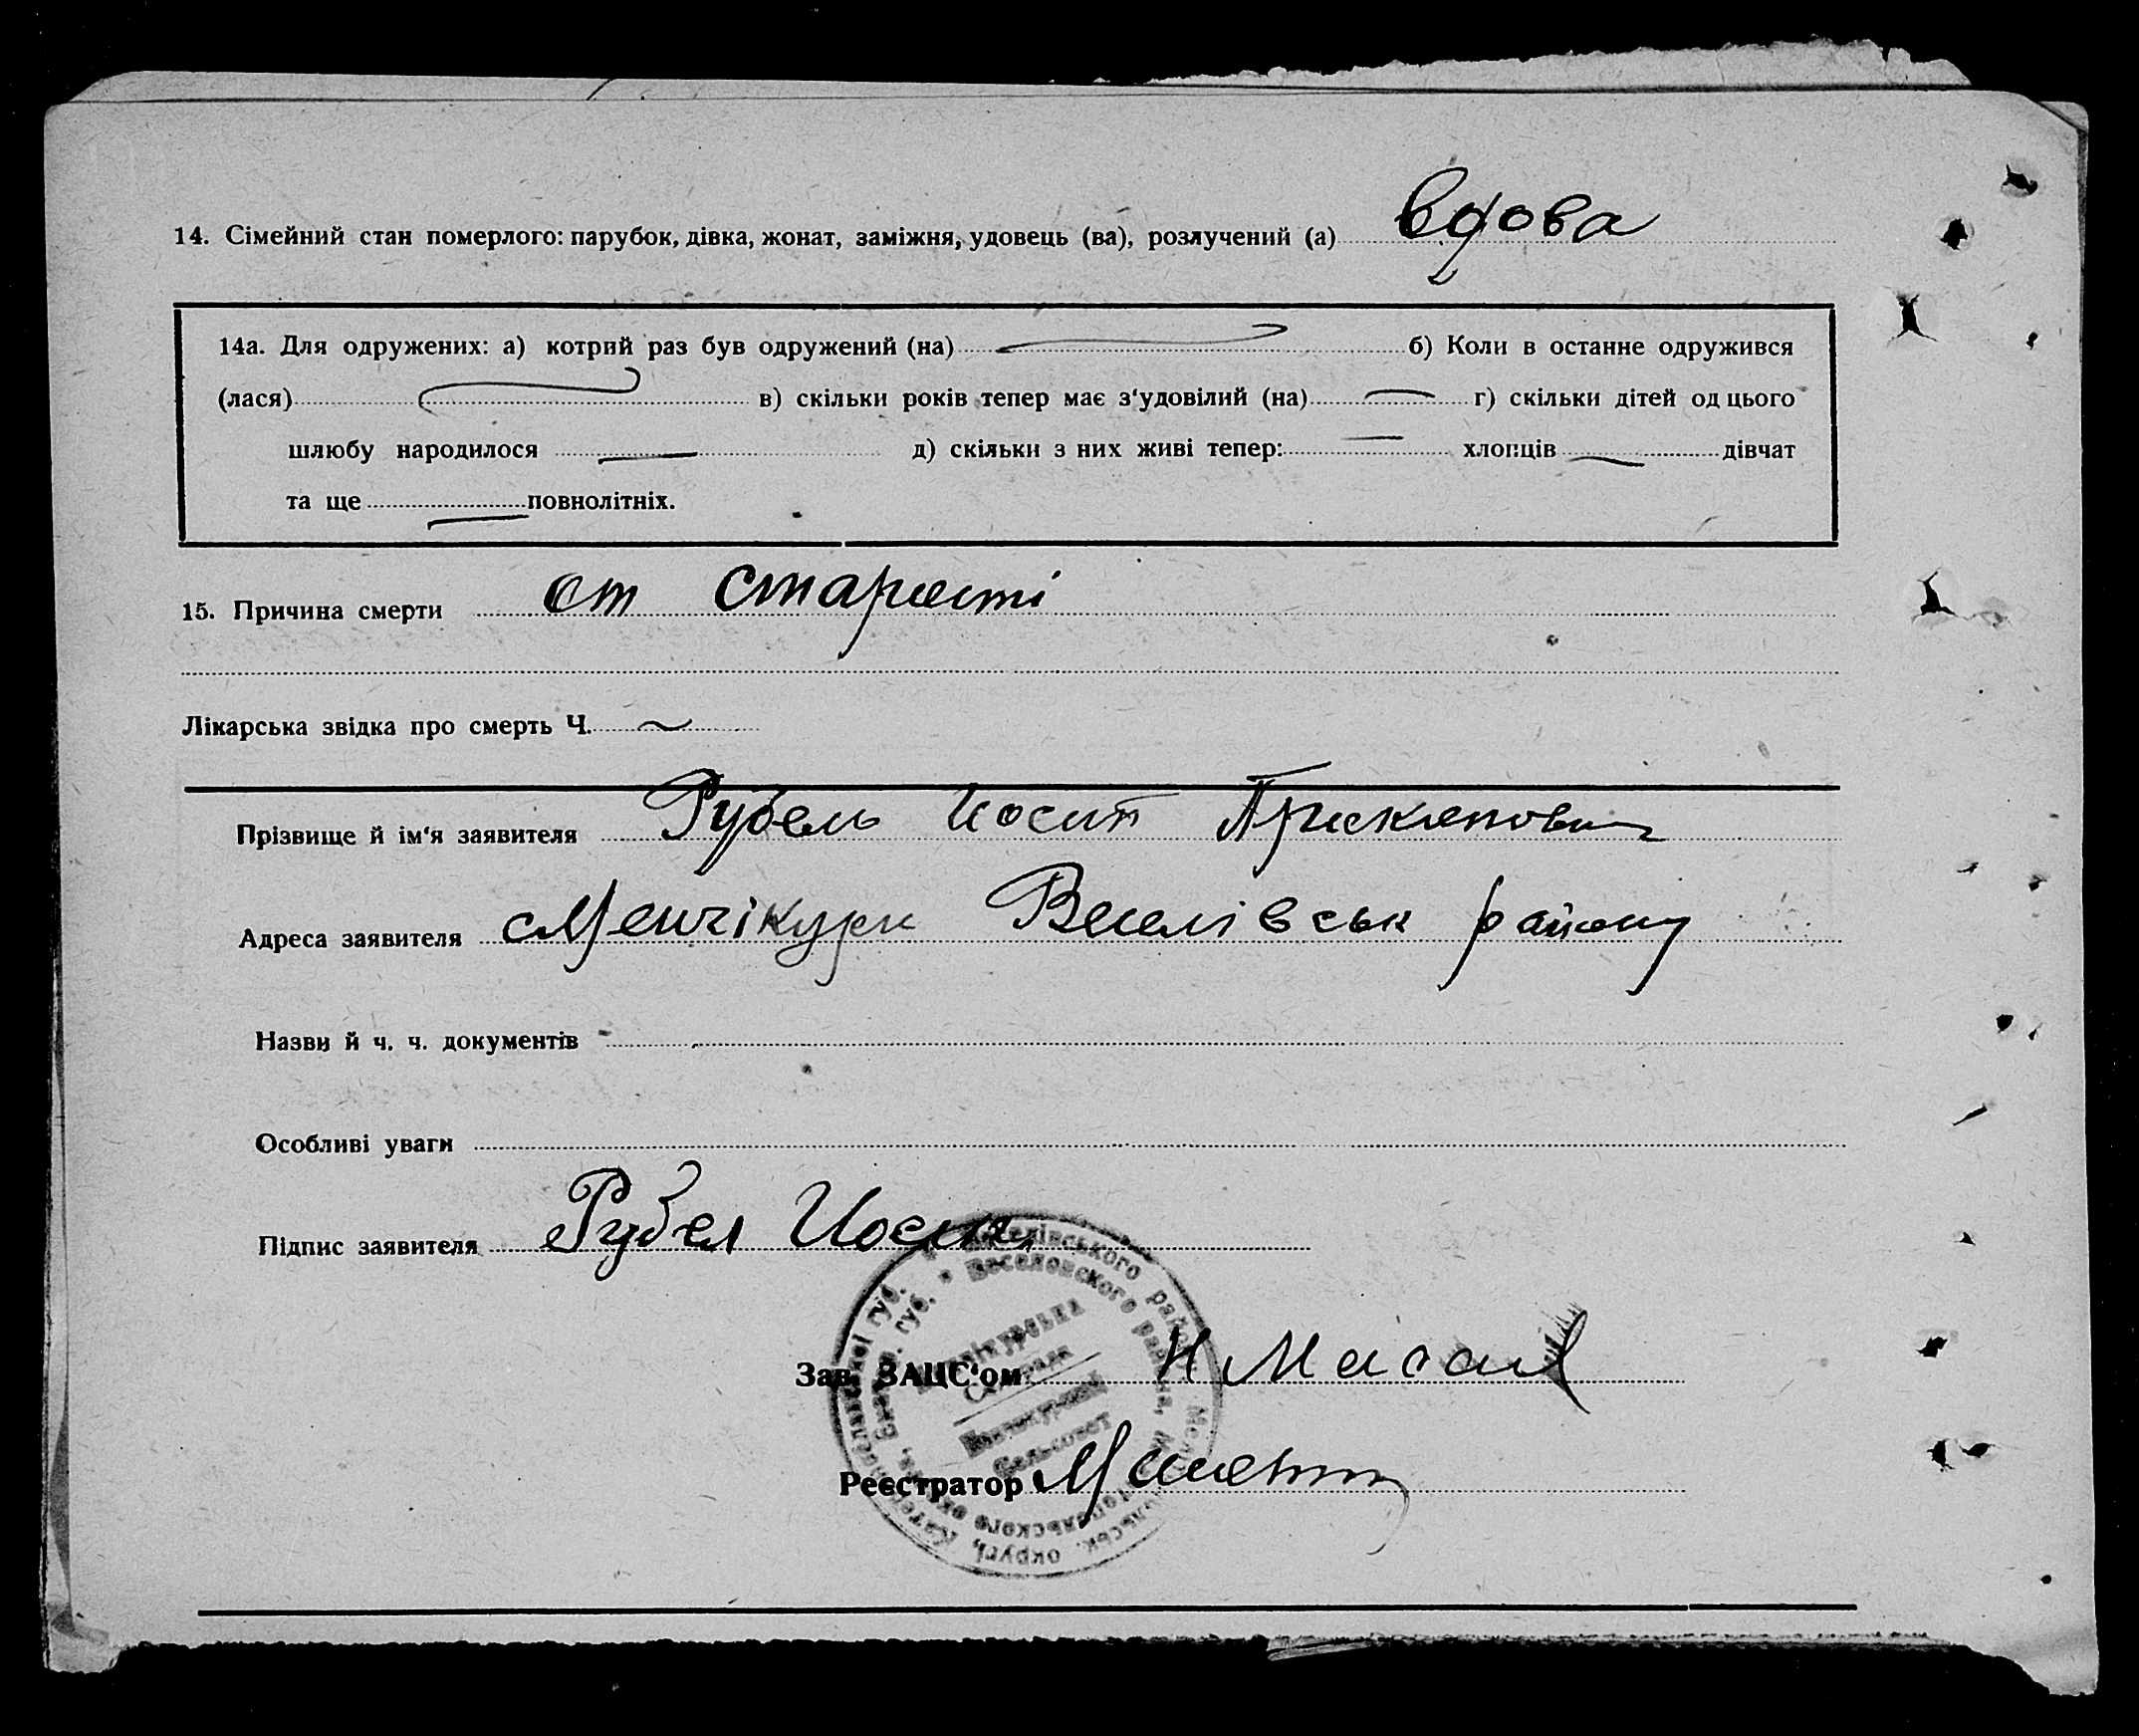 14. Сімейний стан померлого: парубок, дівка, жонат, заміжня, удовець (ва), розлучений (а) вдова
14а. Для одружених: а) котрий раз був одружений (на) б) Коли в останне одружився
(лася) в) скільки років тепер має з'удовілий (на) г) скільки дітей од цього
шлюбу народилося д) скільки з них живі тепер: хлопців дівчат
та ще повнолітніх.
15. Причина смерти от старості
Лікарська звідка про смерть Ч.
Прізвище й ім'я заявителя Рубель Иосип
Адреса заявителя с Менчікури Веселівськ району
Назви й ч. ч. документів
Особливі уваги
Підпис заявителя Рубел Иосип
Веселівського району
Веселовского района
Зав. ЗАЦС'ом
Реєстратор